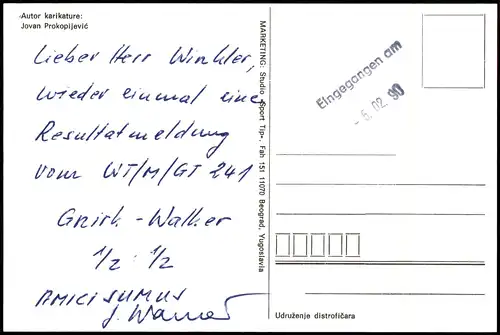 Autor karikature:
Jovan Prokopijević
Lieber Herr Winkler,
wieder einmal eine
Resultatmeldung
vom WT/M/GT 241
Gnirk - Walker
1/2 : 1/2
AMICI SUMUS
MARKETING: Studio »Sport Tip«, Fah 151 11070 Beograd, Yugoslavia
Eingegangen am
- 6. 02. 90
Udruženje distrofičara